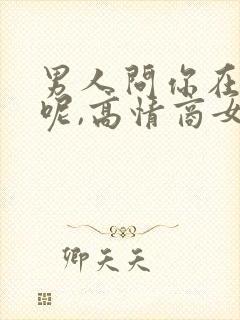 男人問你在
呢,高情商女
卿天天